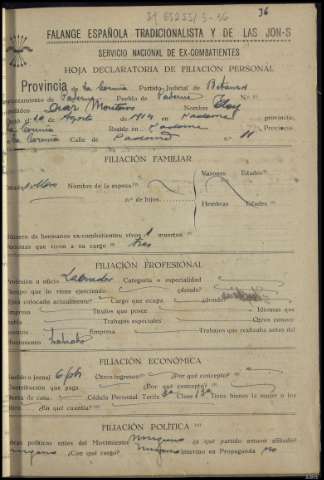 36
FALANGE ESPAÑOLA TRADICIONALISTA Y DE LAS JON-S
SERVICIO NACIONAL DE EX-COMBATIENTES
HOJA DECLARATORIA DE FILIACIÓN PERSONAL
Provincia de La Coruña Partido Judicial de Betanzos
Ayuntamiento de Paderne Pueblo de Paderne N.º
Apellidos Díaz Monteros Nombre Eloy
de Agosto de 1914 en provincia
Coruña Reside en Paderne provincia
La Coruña Calle de Paderne n. 11
FILIACIÓN FAMILIAR
Estado Soltero Nombre de la esposa Varones Edades
n.º de hijos Hembras Edades
Número de hermanos ex-combatientes vivos 1 muertos
Personas que viven a su cargo tres
FILIACIÓN PROFESIONAL
Profesión u oficio Labrador Categoría o especialidad
Tiempo que lo viene ejerciendo ¿dónde?
Está colocado actualmente? Cargo que ocupa ¿dónde?
Empresa Títulos que posee Idiomas que
habla Trabajos especiales Otros conoci-
mientos Empresa Trabajos que realizaba antes del
Movimiento Labrador
FILIACIÓN ECONÓMICA
Sueldo o jornal 6 pts Otros ingresos ¿Por qué concepto?
Contribución que paga ¿Por qué concepto?
Renta de casa Cédula Personal Tarifa 3ª Clase 13ª Tiene bienes la mujer o los
¿En qué cuantía?
FILIACIÓN POLÍTICA
Ideas políticas antes del Movimiento ninguna en qué partido estuvo afiliado
ninguno ¿Con qué cargo? ninguno intervino en Propaganda no